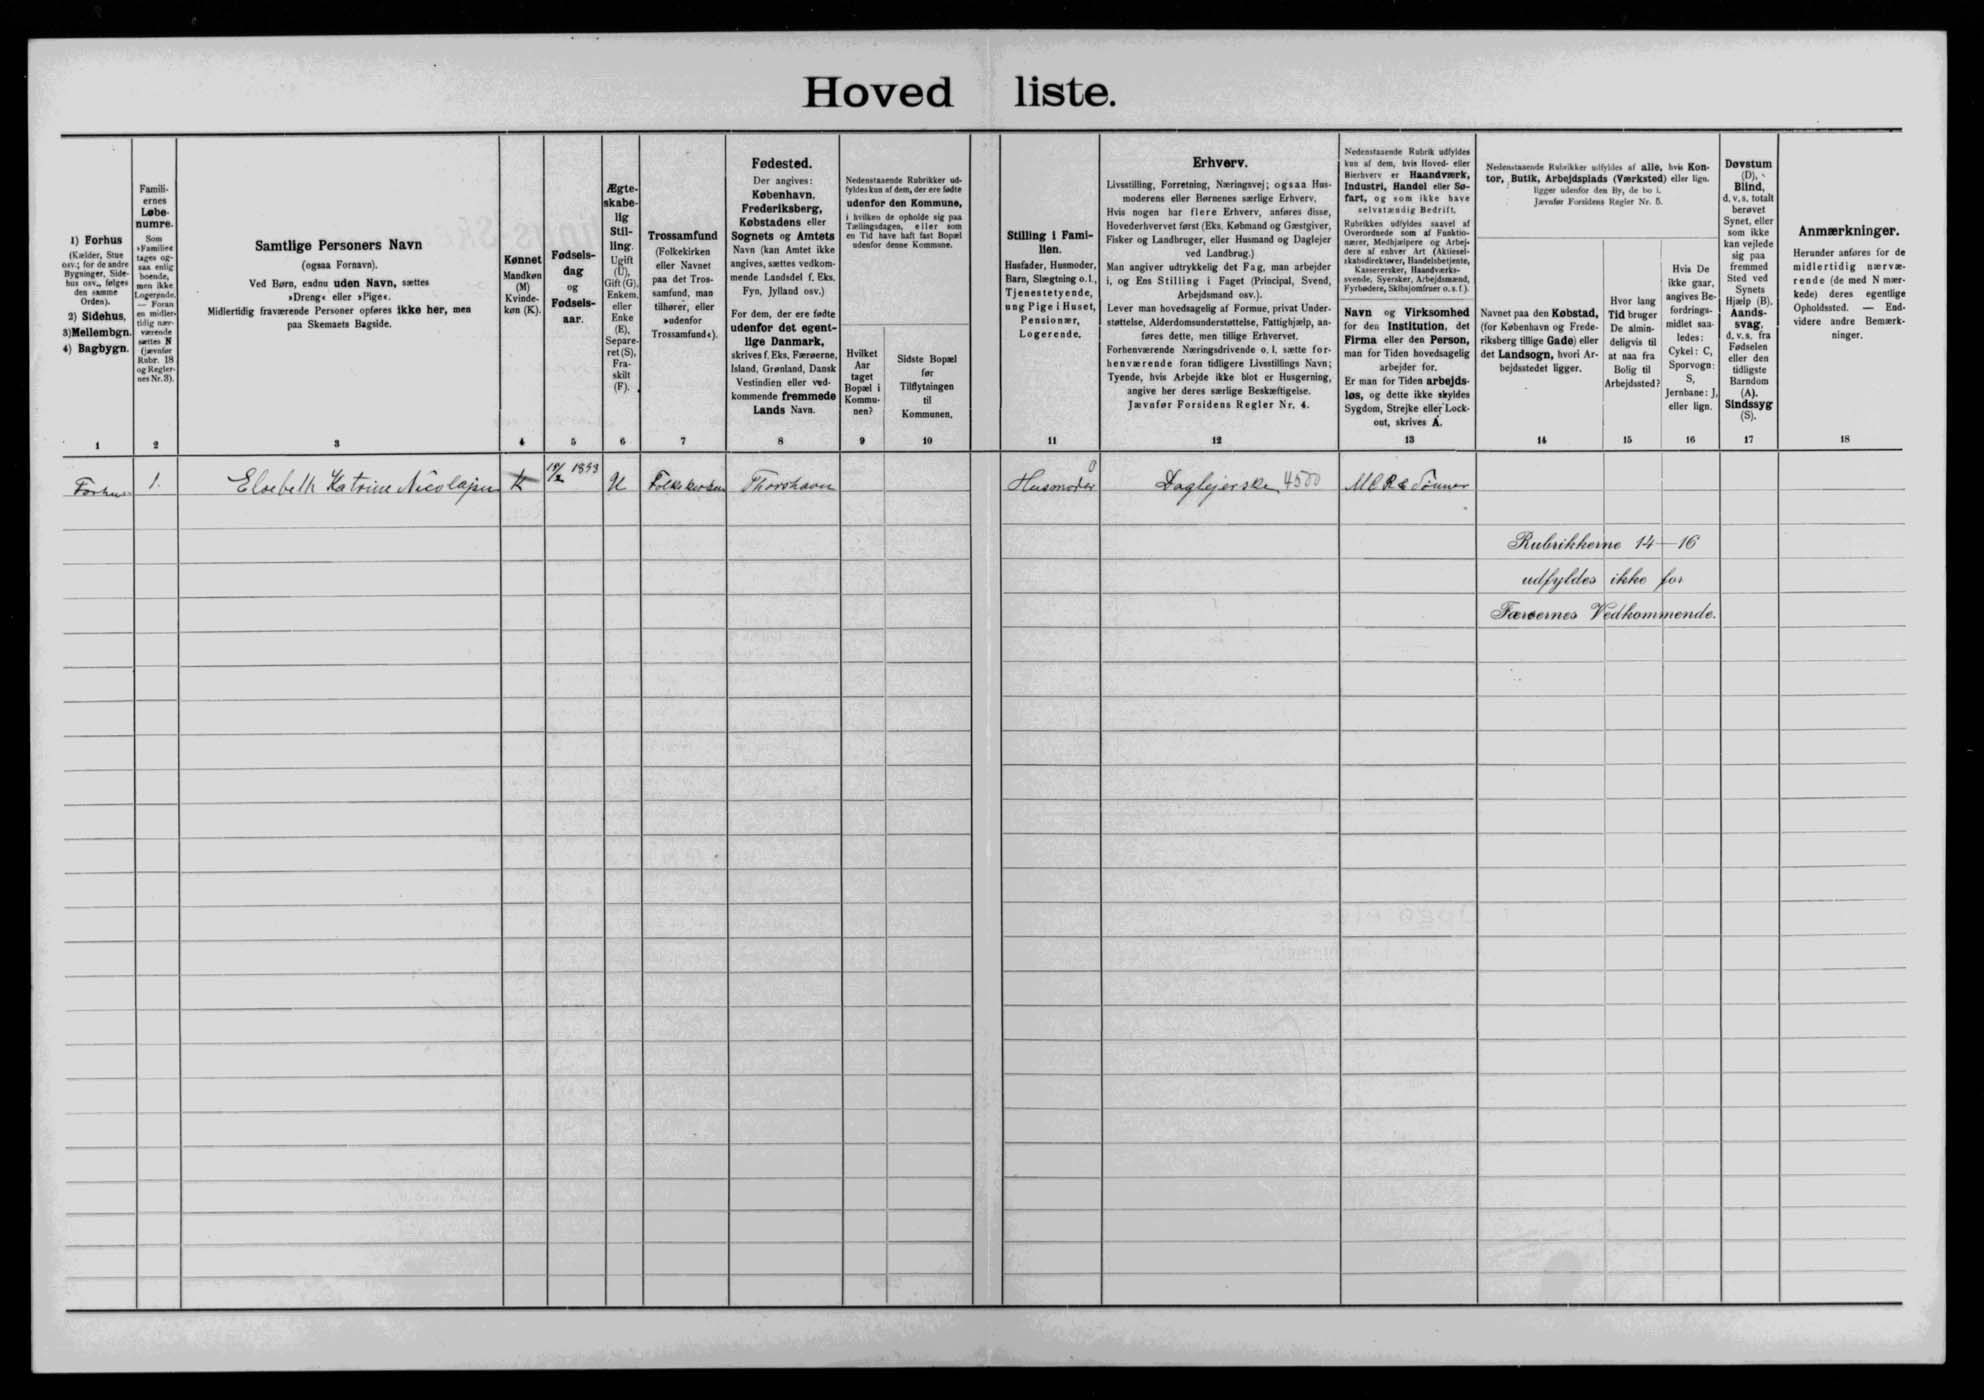 Hovedliste.
1) Forhus
(Kælder, Stue
osv.; for de andre
Bygninger, Side-
hus osv., følges
den samme
Orden).
2) Sidehus,
3) Mellembgn.
4) Bagbygn.
1
Famili-
ernes
Løbe-
numre.
Som
»Familie«
tages og-
saa enlig
boende,
men ikke
Logerende.
— Foran
en midler-
tidig nær-
værende
sættes N
(jævnfør
Rubr. 18
og Regler-
nes Nr. 3).
2
Samtlige Personers Navn
(ogsaa Fornavn).
Ved Børn, endnu uden Navn, sættes
»Dreng« eller »Pige«.
Midlertidig fraværende Personer opføres ikke her, men
paa Skemaets Bagside.
3
Kønnet
Mandkøn
(M)
Kvinde-
køn (K).
4
Fødsels-
dag
og
Fødsels-
aar.
5
Ægte-
skabe-
lig
Stil-
ling.
Ugift
(U),
Gift (G),
Enkem.
eller
Enke
(E),
Separe-
ret (S),
Fra-
skilt
(F).
6
Trossamfund
(Folkekirken
eller Navnet
paa det Tros-
samfund, man
tilhører, eller
»udenfor
Trossamfund«).
7
Fødested.
Der angives:
København,
Frederiksberg,
Købstadens eller
Sognets og Amtets
Navn (kan Amtet ikke
angives, sættes vedkom-
mende Landsdel f. Eks.
Fyn, Jylland osv.)
For dem, der ere fødte
udenfor det egent-
lige Danmark,
skrives f. Eks. Færøerne,
Island, Grønland, Dansk
Vestindien eller ved-
kommende fremmede
Lands Navn.
8
Nedenstaaende Rubrikker ud-
fyldes kun af dem, der ere fødte
udenfor den Kommune,
i hvilken de opholde sig paa
Tællingsdagen, eller som
en Tid have haft fast Bopæl
udenfor denne Kommune.
Hvilket
Aar
taget
Bopæl i
Kommu-
nen?
9
Sidste Bopæl
før
Tilflytningen
til
Kommunen.
10
Stilling i Fami-
lien.
Husfader, Husmoder,
Barn, Slægtning o.l.,
Tjenestetyende,
ung Pige i Huset,
Pensionær,
Logerende.
11
Erhverv.
Livsstilling, Forretning, Næringsvej; ogsaa Hus-
moderens eller Børnenes særlige Erhverv.
Hvis nogen har flere Erhverv, anføres disse,
Hovederhvervet først (Eks. Købmand og Gæstgiver,
Fisker og Landbruger, eller Husmand og Daglejer
ved Landbrug.)
Man angiver udtrykkelig det Fag, man arbejder
i, og Ens Stilling i Faget (Principal, Svend,
Arbejdsmand osv.).
Lever man hovedsagelig af Formue, privat Under-
støttelse, Alderdomsunderstøttelse, Fattighjælp, an-
føres dette, men tillige Erhvervet.
Forhenværende Næringsdrivende o. l. sætte for-
henværende foran tidligere Livsstillings Navn;
Tyende, hvis Arbejde ikke blot er Husgerning,
angive her deres særlige Beskæftigelse.
Jævnfør Forsidens Regler Nr. 4.
12
Nedenstaaende Rubrik udfyldes
kun af dem, hvis Hoved- eller
Bierhverv er Haandværk,
Industri, Handel eller Sø-
fart, og som ikke have
selvstændig Bedrift.
Rubrikken udfyldes saavel af
Overordnede som af Funktio-
nærer, Medhjælpere og Arbej-
dere af enhver Art (Aktiesel-
skabsdirektører, Handelsbetjente,
Kasserersker, Haandværks-
svende, Syersker, Arbejdsmænd,
Fyrbødere, Skibsjomfruer o.s.f.).
Navn og Virksomhed
for den Institution, det
Firma eller den Person,
man for Tiden hovedsagelig
arbejder for.
Er man for Tiden arbejds-
løs, og dette ikke skyldes
Sygdom, Strejke eller Lock-
out, skrives A.
13
Nedenstaaende Rubrikker udfyldes af alle, hvis Kon-
tor, Butik, Arbejdsplads (Værksted) eller lign.
ligger udenfor den By, de bo i.
Jævnfør Forsidens Regler Nr. 5.
Navnet paa den Købstad,
(for København og Frede-
riksberg tillige Gade) eller
det Landsogn, hvori Ar-
bejdsstedet ligger.
14
Hvor lang
Tid bruger
De almin-
deligvis til
at naa fra
Bolig til
Arbejdssted?
15
Hvis De
ikke gaar,
angives Be-
fordrings-
midlet saa-
ledes:
Cykel: C,
Sporvogn:
S,
Jernbane: J,
eller lign.
16
Døvstum
(D),
Blind,
d. v. s. totalt
berøvet
Synet, eller
som ikke
kan vejlede
sig paa
fremmed
Sted ved
Synets
Hjælp (B).
Aands-
svag,
d. v. s. fra
Fødselen
eller den
tidligste
Barndom
(A).
Sindssyg
(S).
17
Anmærkninger.
Herunder anføres for de
midlertidig nærvæ-
rende (de med N mær-
kede) deres egentlige
Opholdssted. — End-
videre andre Bemærk-
ninger.
18
Forhus 1. Elsebeth Katrine Nicolajsen K 18/2 1893 U Folkekirken Thorshavn Husmoder 0 Daglejerske 4500
Rubrikkerne 14—16
udfyldes ikke for
Færøernes Vedkommende.